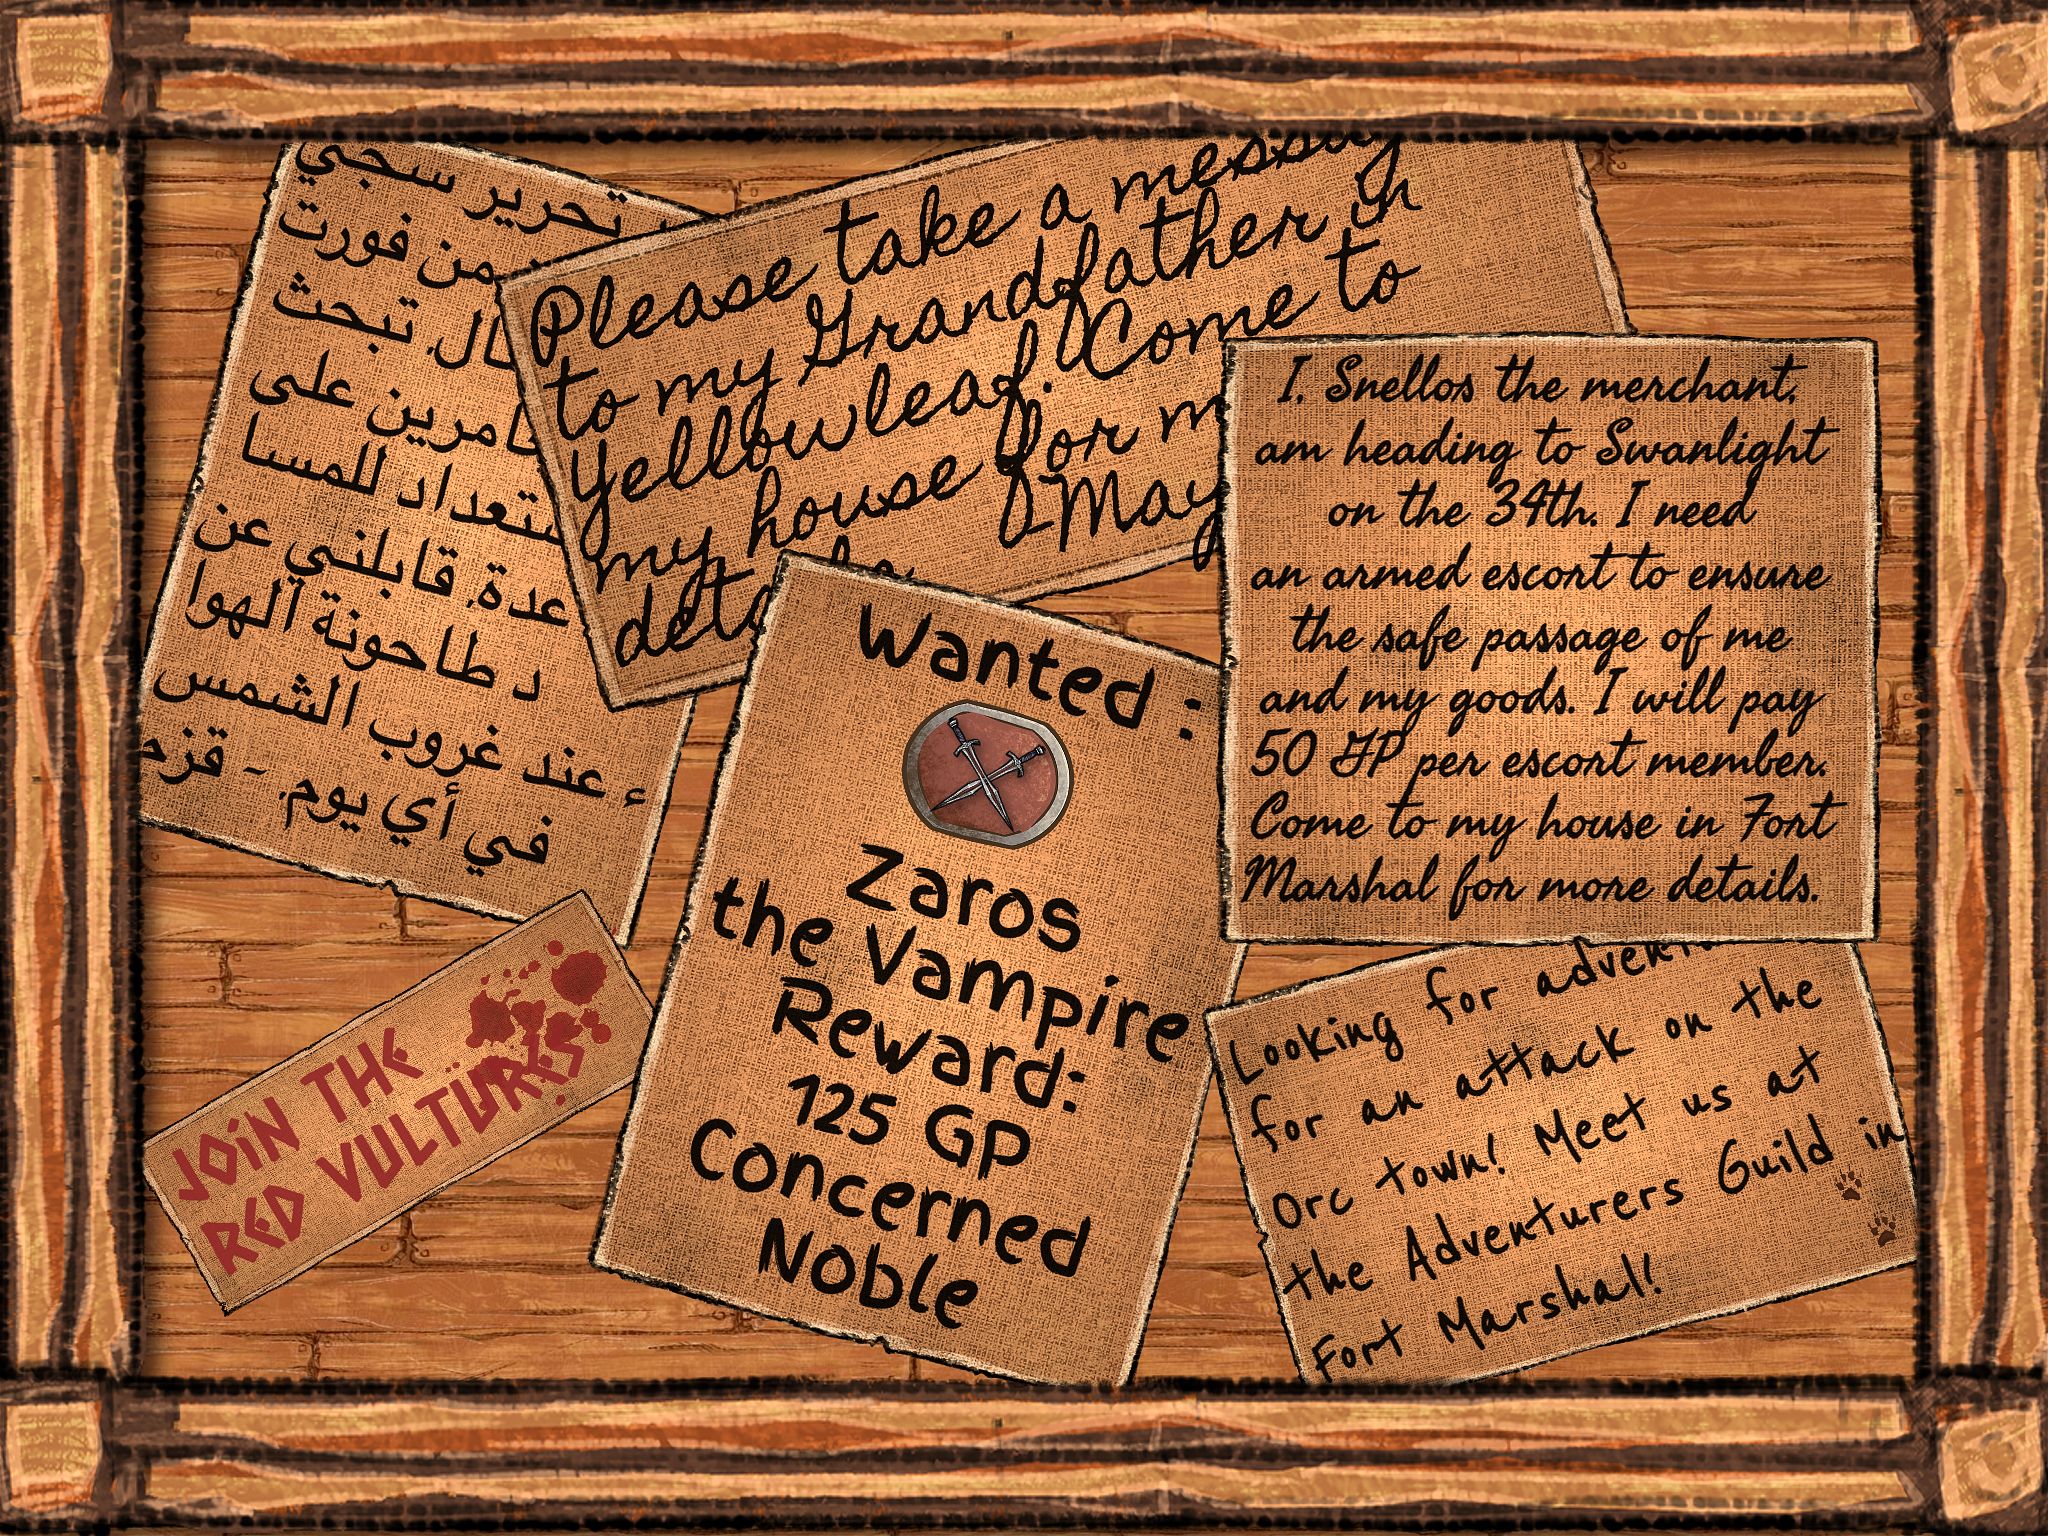 تحرير سجي
من فورت
تبحث
على
للمسا
عدة. قابلني عن
د طاحونة الهوا
ء عند غروب الشمس
في أي يوم. - قزح
Please take a messag
to my Grandfather in
Yellowleaf. Come to
my house for m
deta
-May
I, Snellos the merchant,
am heading to Swanlight
on the 34th. I need
an armed escort to ensure
the safe passage of me
and my goods. I will pay
50 GP per escort member.
Come to my house in Fort
Marshal for more details.
Wanted :
Zaros
the Vampire
Reward:
125 GP
Concerned
Noble
JOIN THE
RED VULTURES
Looking for advent
for an attack on the
Orc town! Meet us at
the Adventurers Guild in
Fort Marshal!